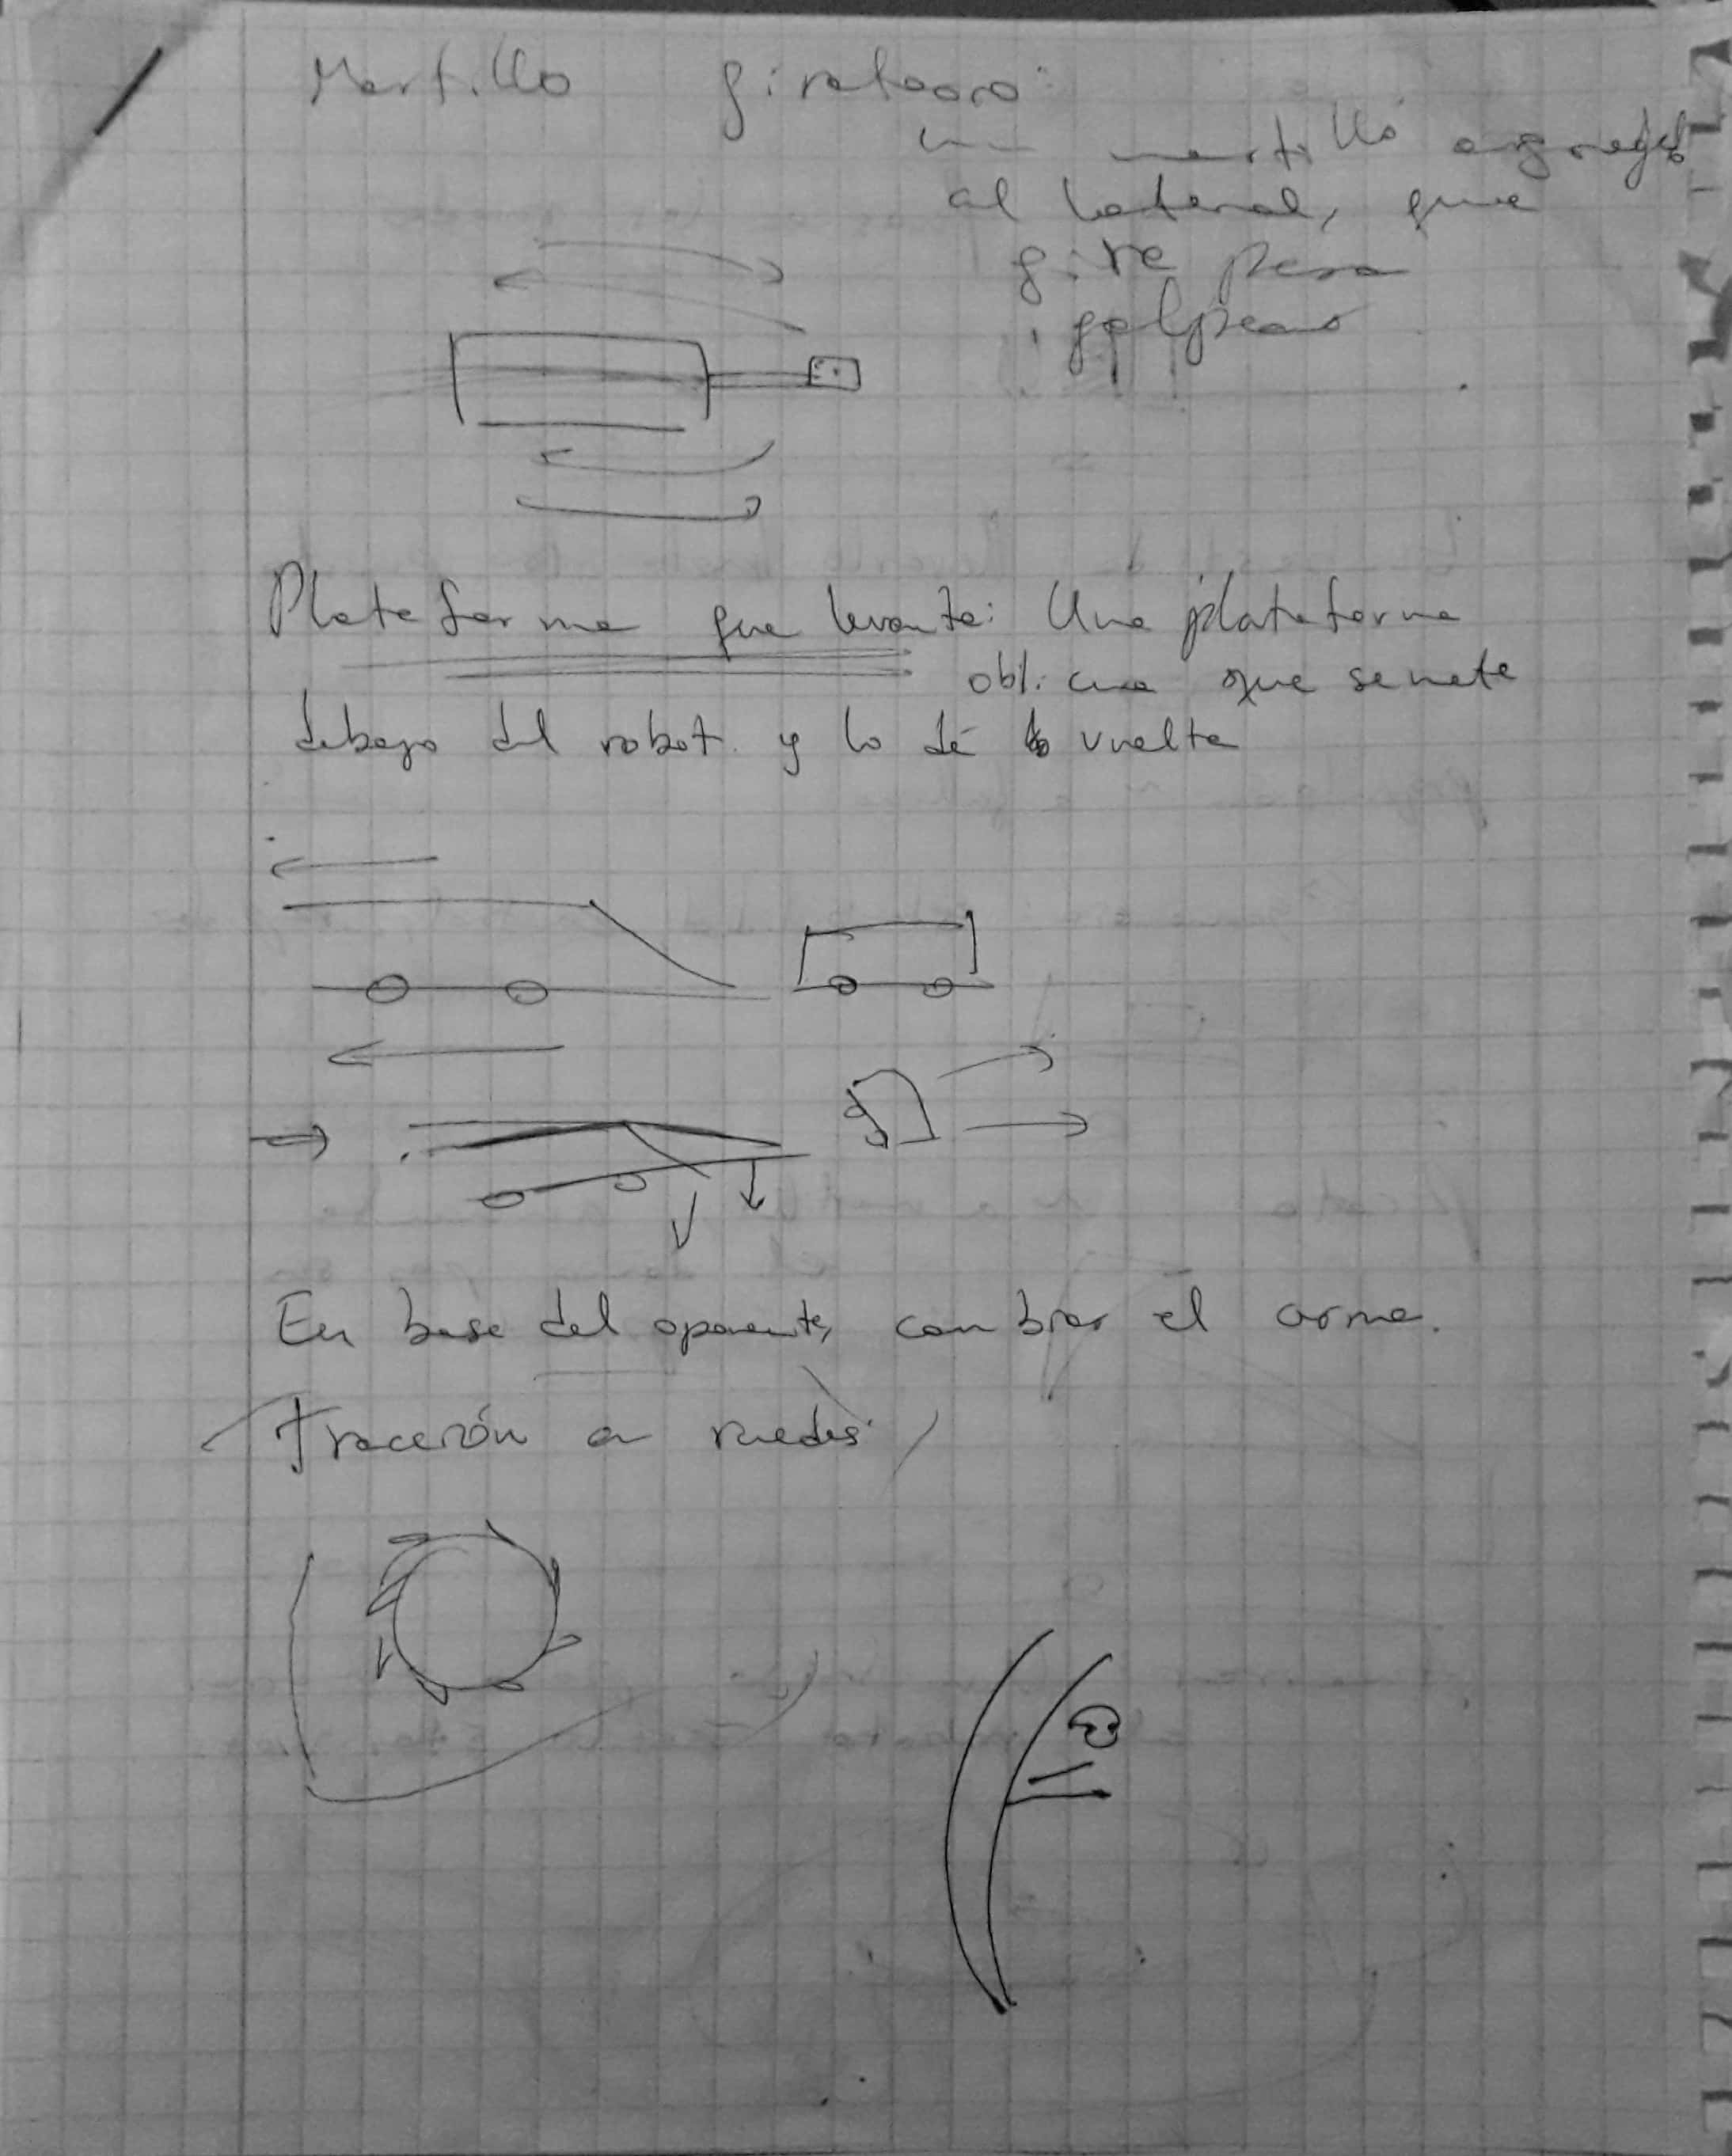 Martillo giratorio:
un martillo agregado
al lateral, que
gire para
golpear
Plataforma que levanta: Una plataforma
oblicua que se mete
debajo del robot y lo dé vuelta
En base del oponente, cambiar el arma.
Tracción a ruedas